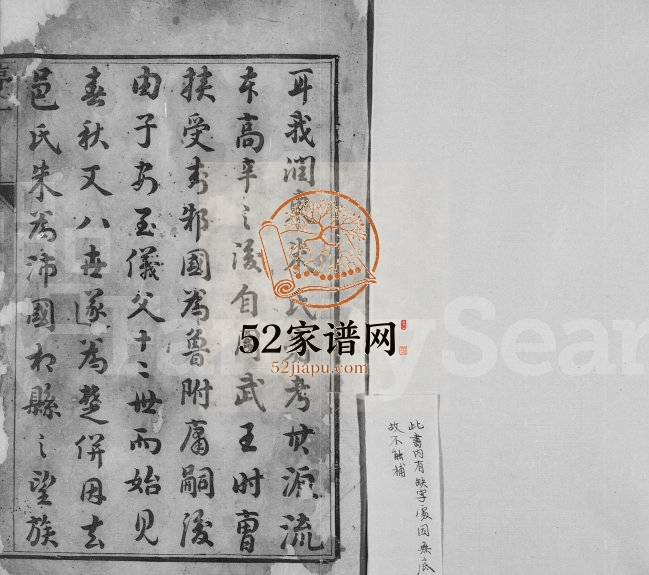 耳我澗東朱氏考其源流
本高辛之後自周武王時曹
挟受封邾國為魯附庸嗣後
由子安至儀父十二世而始見
春秋又八世遂為楚併因去
邑氏朱為沛國相縣之望族
此書內有缺字處因無底
故不能補
52家谱网
52jiapu.com